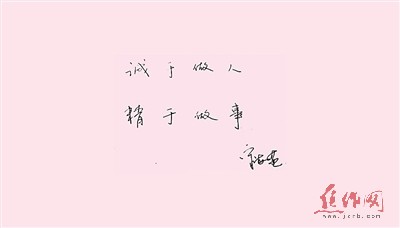 诚于做人
精于做事
焦作网
www.jzrb.com